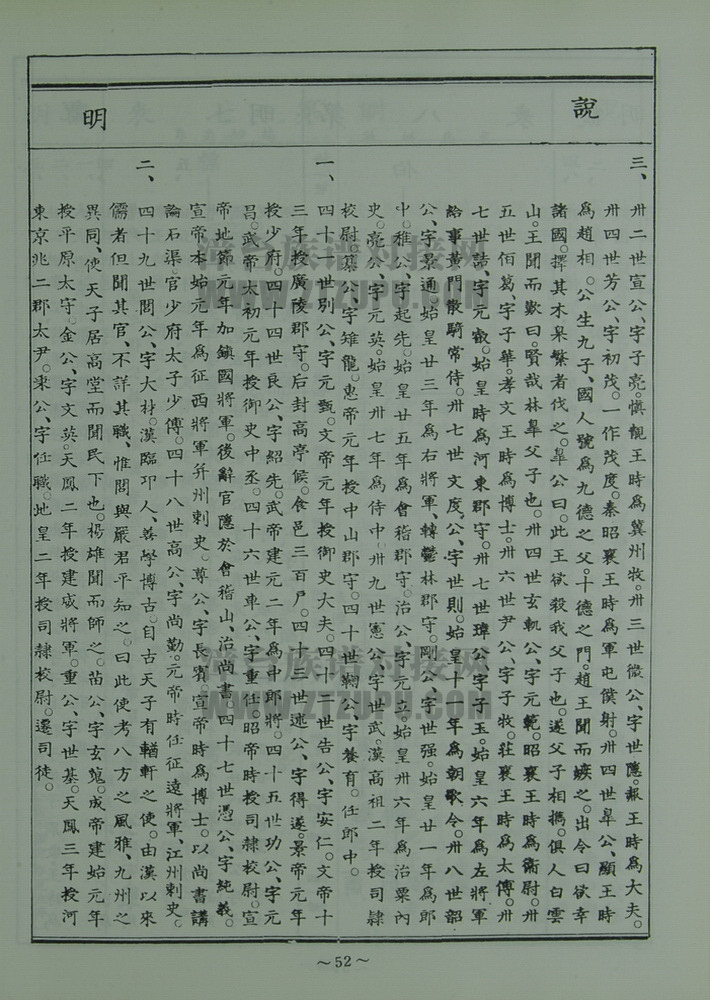 說明
三、卅二世宣公、字子亮。慎靚王時爲冀州牧。卅三世微公、字世隱。赧王時爲大夫。
卅四世芳公、字初茂。一作茂度。秦昭襄王時爲軍屯僕射。卅四世皐公、顯王時
爲趙相。公生九子、國人號爲九德之父。十德之門。趙王聞而嫉之。出令曰欲幸
諸國。擇其木枲繁者伐之。皐公曰。此王欲殺我父子也。遂父子相攜。俱入白雲
山。王聞而歎曰。賢哉林皐父子也。卅四世玄軌公、字元範。昭襄王時爲衞尉。卅
五世佰葛、字子華。孝文王時爲博士。卅六世尹公、字子牧。莊襄王時爲太傅。卅
七世喆、字元敬。始皇時爲河東郡守。卅七世璋公字子玉。始皇六年爲左將軍
給事黃門散騎常侍。卅七世文度公、字世則。始皇十一年爲朝歌令。卅八世韶
公、字景通。始皇廿三年爲右將軍、轉鬱林郡守。剛公字世强。始皇廿一年爲郎
中。稚公、字起先。始皇廿五年爲會稽郡守。治公、字元立。始皇卅六年爲治粟內
史。亮公、字元英。始皇卅七年爲侍中。卅九世憲公、字世武。漢高祖二年授司隸
校尉。纂公、字雉龍。惠帝元年授中山郡守。四十世鞠公、字養育。任郎中。
一、四十一世別公、字元甄。文帝元年授御史大夫。四十二世告公、字安仁。文帝十
三年授廣陵郡守。后封高亭候。食邑三百戶。四十三世述公、字得遂。景帝元年
授少府。四十四世良公、字紹先。武帝建元二年爲中郎將。四十五世功公、字元
昌。武帝太初元年授御史中丞。四十六世車公、字重任。昭帝時授司隸校尉。宣
帝地節元年加鎮國將軍。後辭官隱於會稽山、治尚書。四十七世憑公、字純義。
宣帝本始元年爲征西將軍幷州剌史。尊公、字長賓宣帝時爲博士。以尚書講
論石渠。官少府太子少傅。四十八世高公、字尚勤。元帝時任征遠將軍、江州剌史。
二、四十九世閭公、字大材。漢臨邛人、善學博古。自古天子有輶軒之使。由漢以來
儒者但聞其官、不詳其職、惟閭與嚴君平知之。曰此使考八方之風雅、九州之
異同、使天子居高堂而聞民下也。楊雄聞而師之。苗公、字玄嵬。成帝建始元年
授平原太守。金公、字文英。天鳳二年授建威將軍。重公、字世基。天鳳三年授河
東京兆二郡太尹。柬公、字任職。地皇二年授司隸校尉。遷司徒。
~52~
漳台族谱对接网
WWW.ZTZUPU.COM
漳台族谱对接网
WWW.ZTZUPU.COM